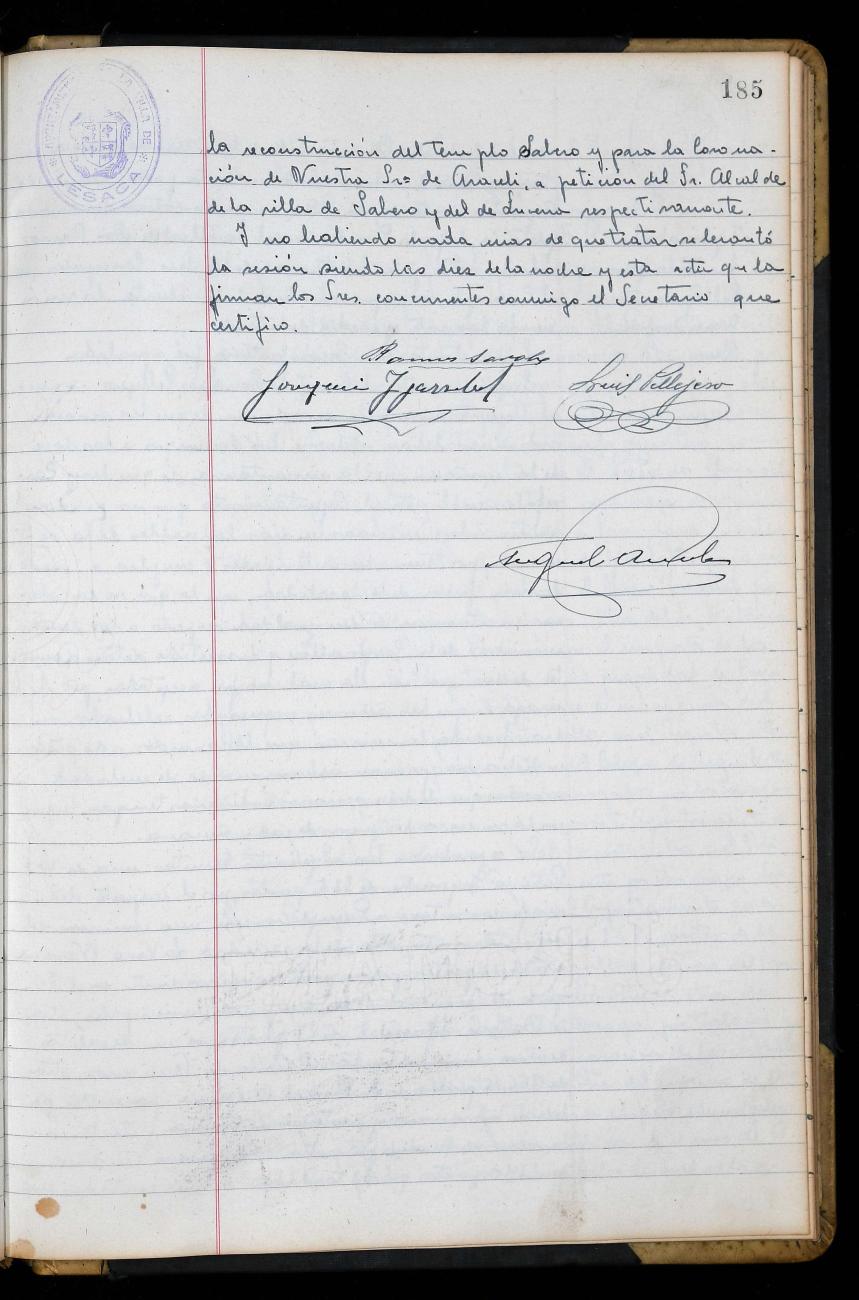 185
AYUNTAMIENTO DE LA VILLA DE
LESACA
la reconstrucción del templo Sabero y para la Corona-
ción de Nuestra Sra de Araceli, a petición del Sr. Alcalde
de la villa de Sabero y del de Lucena respectivamente.
Y no habiendo nada mas de que tratar se levantó
la sesión siendo las diez de la noche y esta acta que la
firman los Sres. concurrentes conmigo el Secretario que
certifico.
Ramos
Joaquin
Luis Pellejero
Miguel